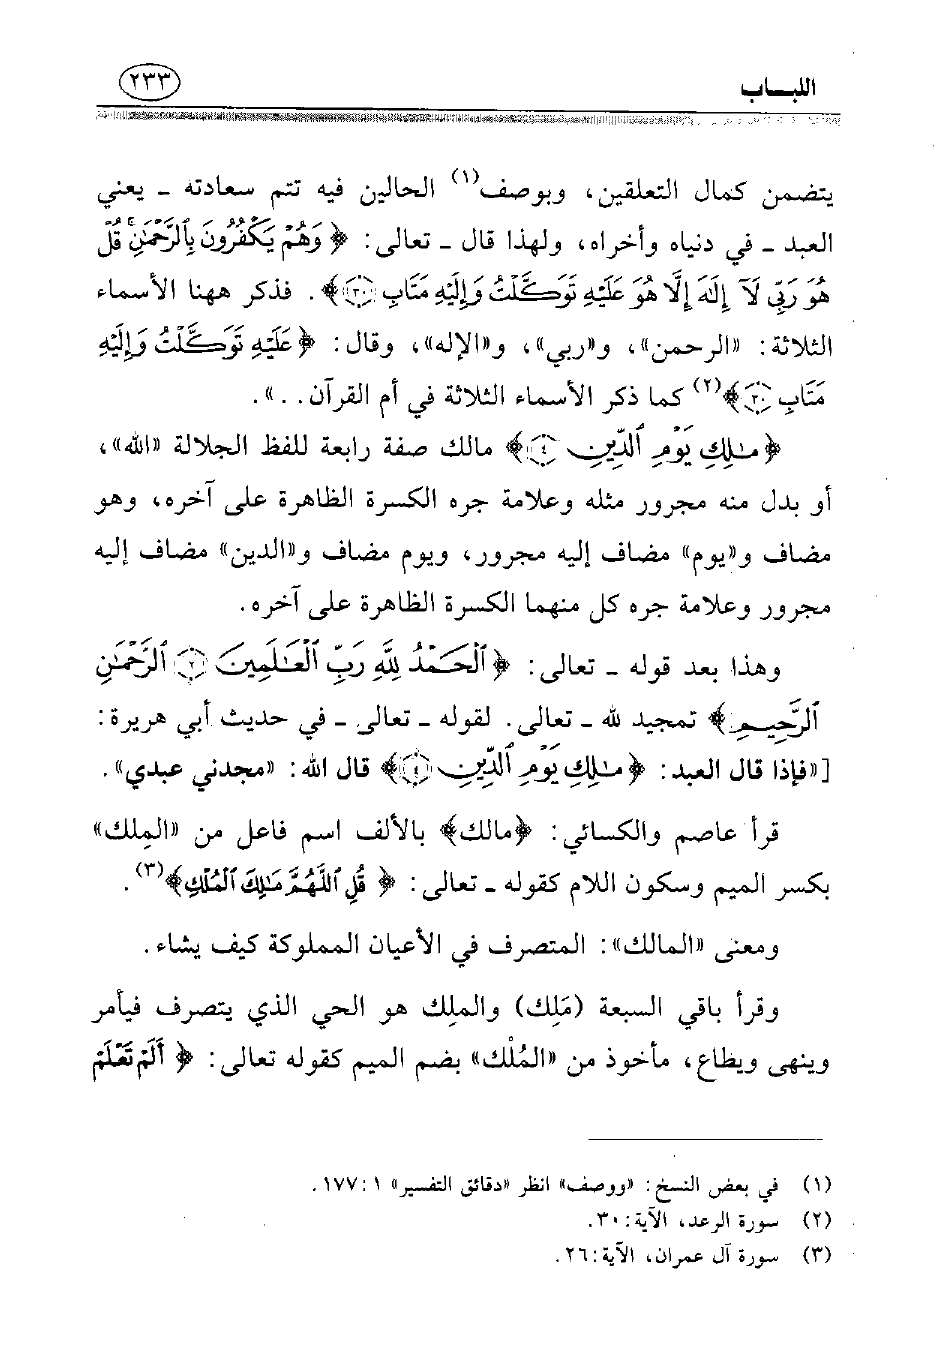 اللبــاب
٢٣٣
يتضمن كمال التعلقين، وبوصف(١) الحالين فيه تتم سعادته ـ يعني
العبد ـ في دنياه وأخراه، ولهذا قال ـ تعالى: ﴿وَهُمْ يَكْفُرُونَ بِٱلرَّحْمَٰنِ ۚ قُلْ
هُوَ رَبِّى لَآ إِلَٰهَ إِلَّا هُوَ عَلَيْهِ تَوَكَّلْتُ وَإِلَيْهِ مَتَابِ ۝٣٠﴾. فذكر ههنا الأسماء
الثلاثة: «الرحمن»، و«ربي»، و«الإله»، وقال: ﴿عَلَيْهِ تَوَكَّلْتُ وَإِلَيْهِ
مَتَابِ ۝٣٠﴾(٢) كما ذكر الأسماء الثلاثة في أم القرآن. . ».
﴿مَٰلِكِ يَوْمِ ٱلدِّينِ ۝٤﴾ مالك صفة رابعة للفظ الجلالة «الله»،
أو بدل منه مجرور مثله وعلامة جره الكسرة الظاهرة على آخره، وهو
مضاف و«يوم» مضاف إليه مجرور، ويوم مضاف و«الدين» مضاف إليه
مجرور وعلامة جره كل منهما الكسرة الظاهرة على آخره.
وهذا بعد قوله ـ تعالى: ﴿ٱلْحَمْدُ لِلَّهِ رَبِّ ٱلْعَٰلَمِينَ ۝٢ ٱلرَّحْمَٰنِ
ٱلرَّحِيمِ﴾ تمجيد لله ـ تعالى. لقوله ـ تعالى ـ في حديث أبي هريرة:
[«فإذا قال العبد: ﴿مَٰلِكِ يَوْمِ ٱلدِّينِ ۝٤﴾ قال الله: «مجدني عبدي».
قرأ عاصم والكسائي: ﴿مالك﴾ بالألف اسم فاعل من «المِلك»
بكسر الميم وسكون اللام كقوله ـ تعالى: ﴿قُلِ ٱللَّهُمَّ مَٰلِكَ ٱلْمُلْكِ﴾(٣).
ومعنى «المالك»: المتصرف في الأعيان المملوكة كيف يشاء.
وقرأ باقي السبعة (مَلِك) والملِك هو الحي الذي يتصرف فيأمر
وينهى ويطاع، مأخوذ من «المُلْك» بضم الميم كقوله تعالى: ﴿أَلَمْ تَعْلَمْ
(١) في بعض النسخ: «ووصف» انظر «دقائق التفسير» ١: ١٧٧.
(٢) سورة الرعد، الآية: ٣٠.
(٣) سورة آل عمران، الآية: ٢٦.